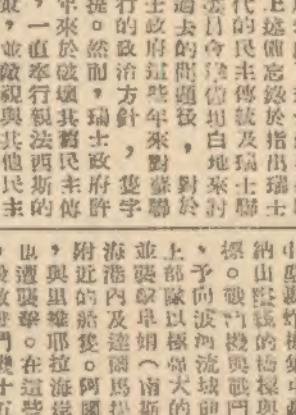 上述備忘錄於指出瑞士
代的民主傳統及瑞士聯
僅坦白地來討
過去的問題後，對於
士政府這些年來對蘇聯
行的政治方針，隻字
提。然而，瑞士政府許
年來於破壞其舊民主傳
，一直奉行親法西斯的
，並敵視與其他民主
中型轟炸機集
納山隘綫的橋樑與
標。戰鬥機與戰鬥
，予向波河流域前
上部隊以極大的
並襲擊阜姆（南斯
海港內及達爾馬提
附近的船隻。阿國
，與里維耶拉海岸
也遭襲擊。在這些